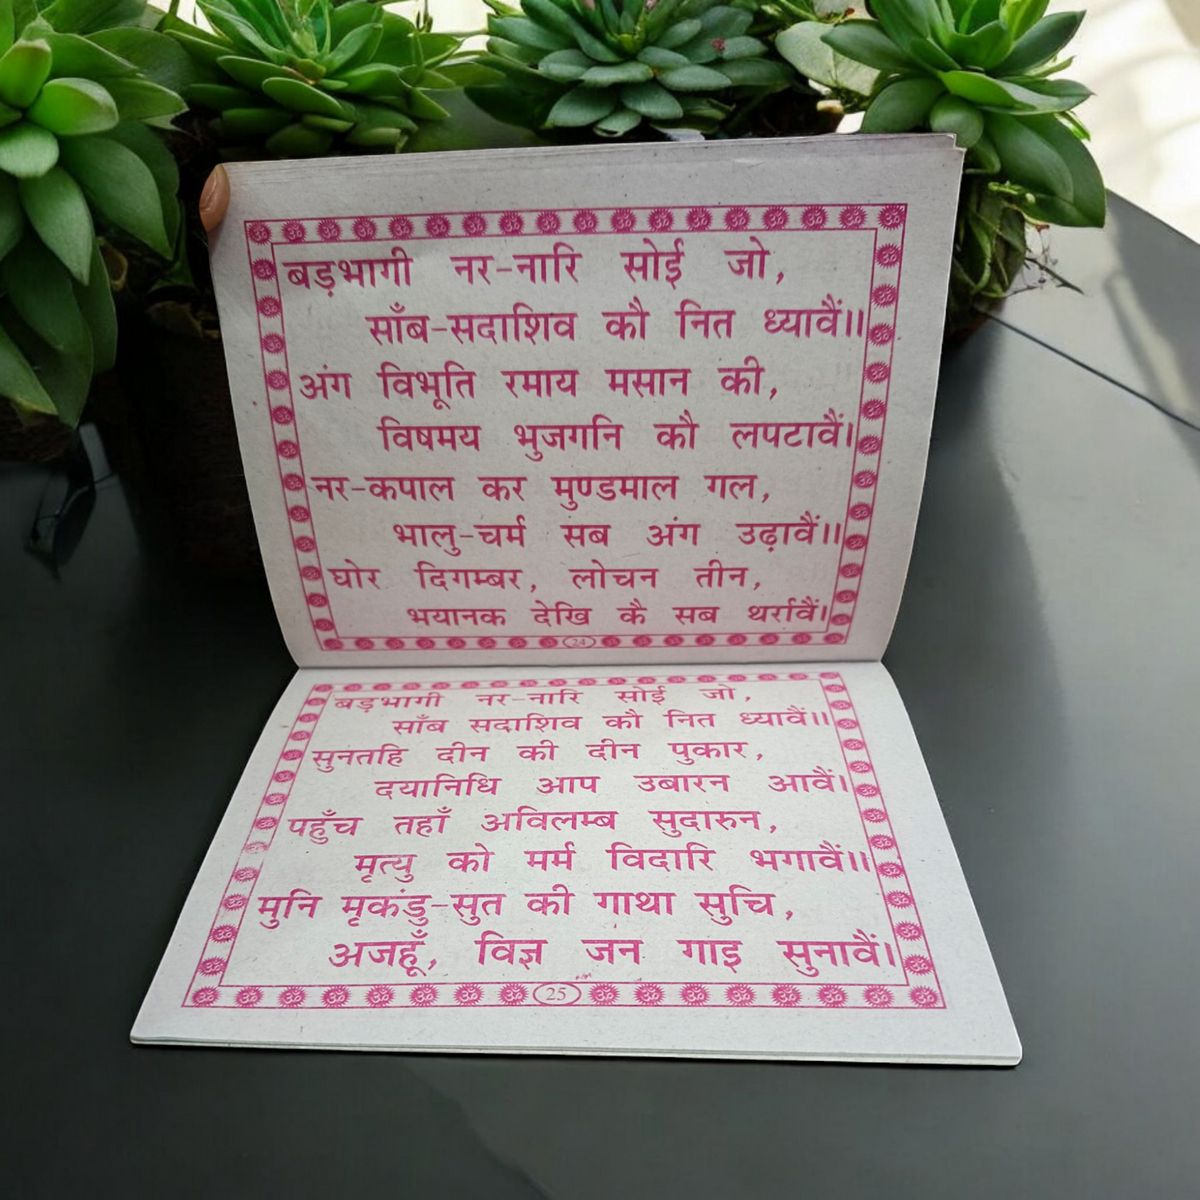 बड़भागी नर-नारि सोई जो,
साँब-सदाशिव कौ नित ध्यावैं।।
अंग विभूति रमाय मसान की,
विषमय भुजगनि कौ लपटावैं।
नर-कपाल कर मुण्डमाल गल,
भालु-चर्म सब अंग उढ़ावैं।।
घोर दिगम्बर, लोचन तीन,
भयानक देखि कै सब थर्रावैं।
24
बड़भागी नर-नारि सोई जो,
साँब सदाशिव कौ नित ध्यावैं।।
सुनतहि दीन की दीन पुकार,
दयानिधि आप उबारन आवैं।
पहुँच तहाँ अविलम्ब सुदारुन,
मृत्यु को मर्म विदारि भगावैं।।
मुनि मृकंडु-सुत की गाथा सुचि,
अजहूँ, विज्ञ जन गाइ सुनावैं।
25